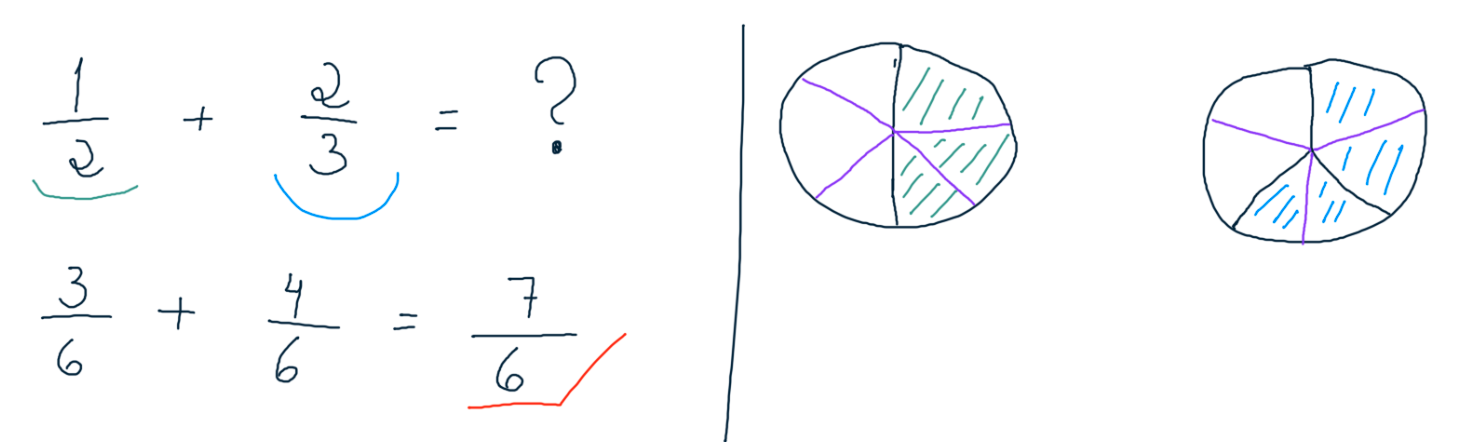 1/2 + 2/3 = ?
3/6 + 4/6 = 7/6